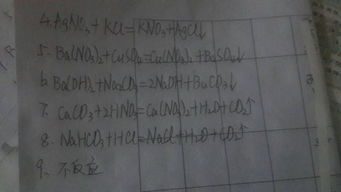 4. AgNO₃ + KCl = KNO₃ + AgCl↓
5. Ba(NO₃)₂ + CuSO₄ = Cu(NO₃)₂ + BaSO₄↓
6. Ba(OH)₂ + Na₂CO₃ = 2NaOH + BaCO₃↓
7. CaCO₃ + 2HNO₃ = Ca(NO₃)₂ + H₂O + CO₂↑
8. NaHCO₃ + HCl = NaCl + H₂O + CO₂↑
9. 不反应